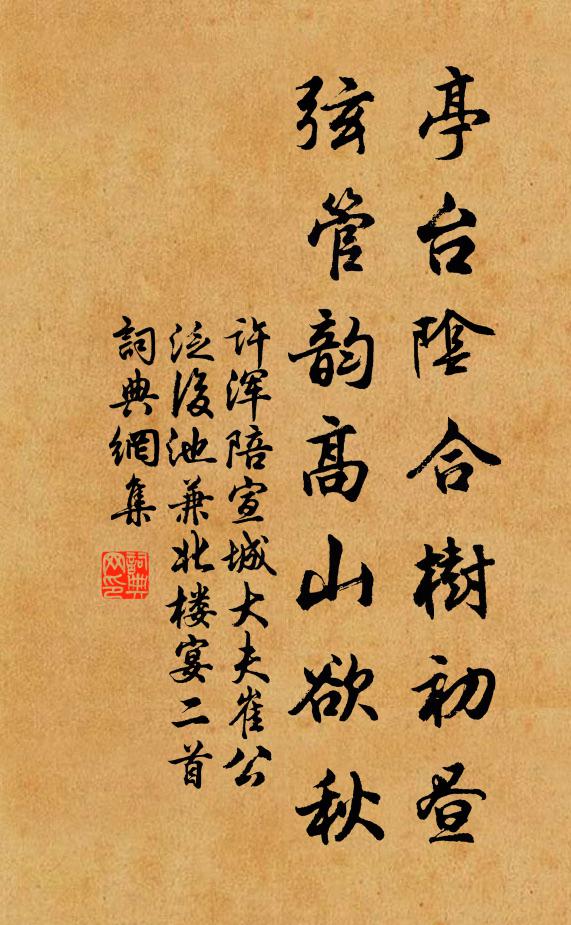 亭台陰合樹初昼
弦管韵高山欲秋
许浑陪宣城大夫崔公
泛後池兼北楼宴二首
詞典網集
詞典网印